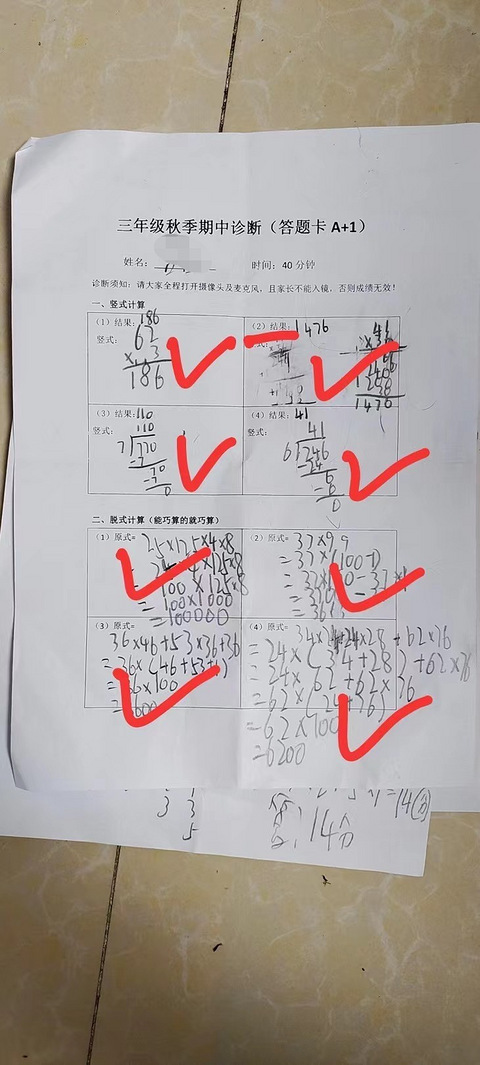 三年级秋季期中诊断（答题卡 A+1）
姓名： 时间：40 分钟
诊断须知：请大家全程打开摄像头及麦克风，且家长不能入镜，否则成绩无效！
一、竖式计算
（1）结果：186
竖式：
62
× 3
186
（2）结果：1476
1476
（3）结果：110
竖式：
110
7 770
-7
70
-70
0
（4）结果：41
竖式：
41
6 246
-24
6
-6
0
二、脱式计算（能巧算的就巧算）
（1）原式= 25×125×4×8
100×125×8
=100×1000
=100000
（2）原式= 37×99
=37×(100-1)
=37×100-37×1
（3）原式=
36×46+53×36+36
=36×(46+53+1)
（4）原式= 34×24+24×28+62×76
=24×(34+28)+62×76
=24×62+62×76
=62×(24+76)
=62×100
=6200
3
3
5
14分